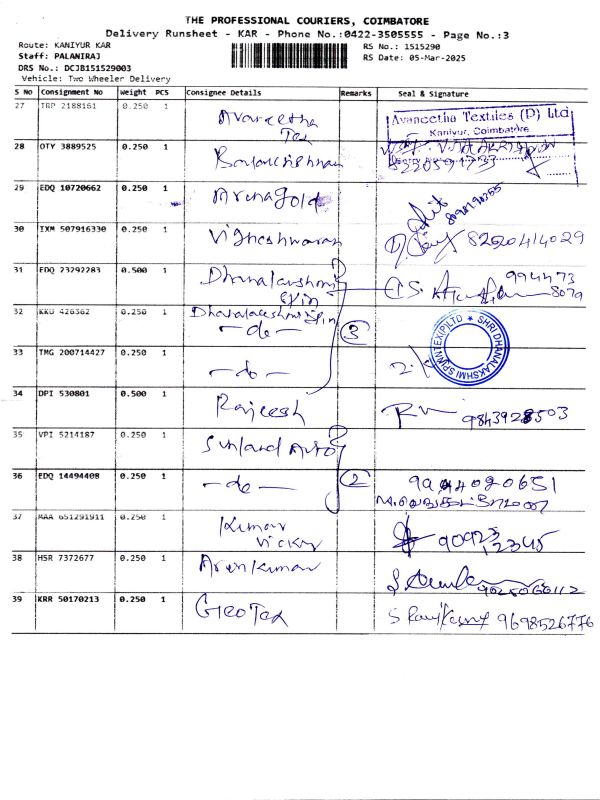 THE PROFESSIONAL COURIERS, COIMBATORE
Delivery Runsheet - KAR - Phone No.:0422-3505555 - Page No.:3
Route: KANIYUR KAR
RS No.: 1515290
Staff: PALANIRAJ
RS Date: 05-Mar-2025
DRS No.: DCJB151529003
Vehicle: Two Wheeler Delivery
S No Consignment No Weight PCS Consignee Details Remarks Seal & Signature
27 TRP 2188161 0.250 1 Avaneetha Tex
Avaneetha Textiles (P) Ltd
Kaniyur, Coimbatore
28 OTY 3889525 0.250 1 Balakrishnan
29 EDQ 10720662 0.250 1 Arnagold
30 IXM 507916330 0.250 1 Vigneshwaran 82620414029
31 EDQ 23292283 0.500 1 Dhanalakshmi Spin 994473 8079
32 KKU 426362 0.250 1 Dhanalakshmi Spin
- do - 3
SHRI DHANALAKSHMI SPINNTEX(P)LTD
33 TMG 200714427 0.250 1 - do -
34 DPI 530801 0.500 1 Rajeesh 9843928503
35 VPI 5214187 0.250 1 Sunland Auto
36 EDQ 14494408 0.250 1 - do - 2 9944020651
37 MAA 651291911 0.250 1 Kumar Vicky 90923 12345
38 HSR 7372677 0.250 1 Arunkumar
39 KRR 50170213 0.250 1 Geo Tex 9698526776